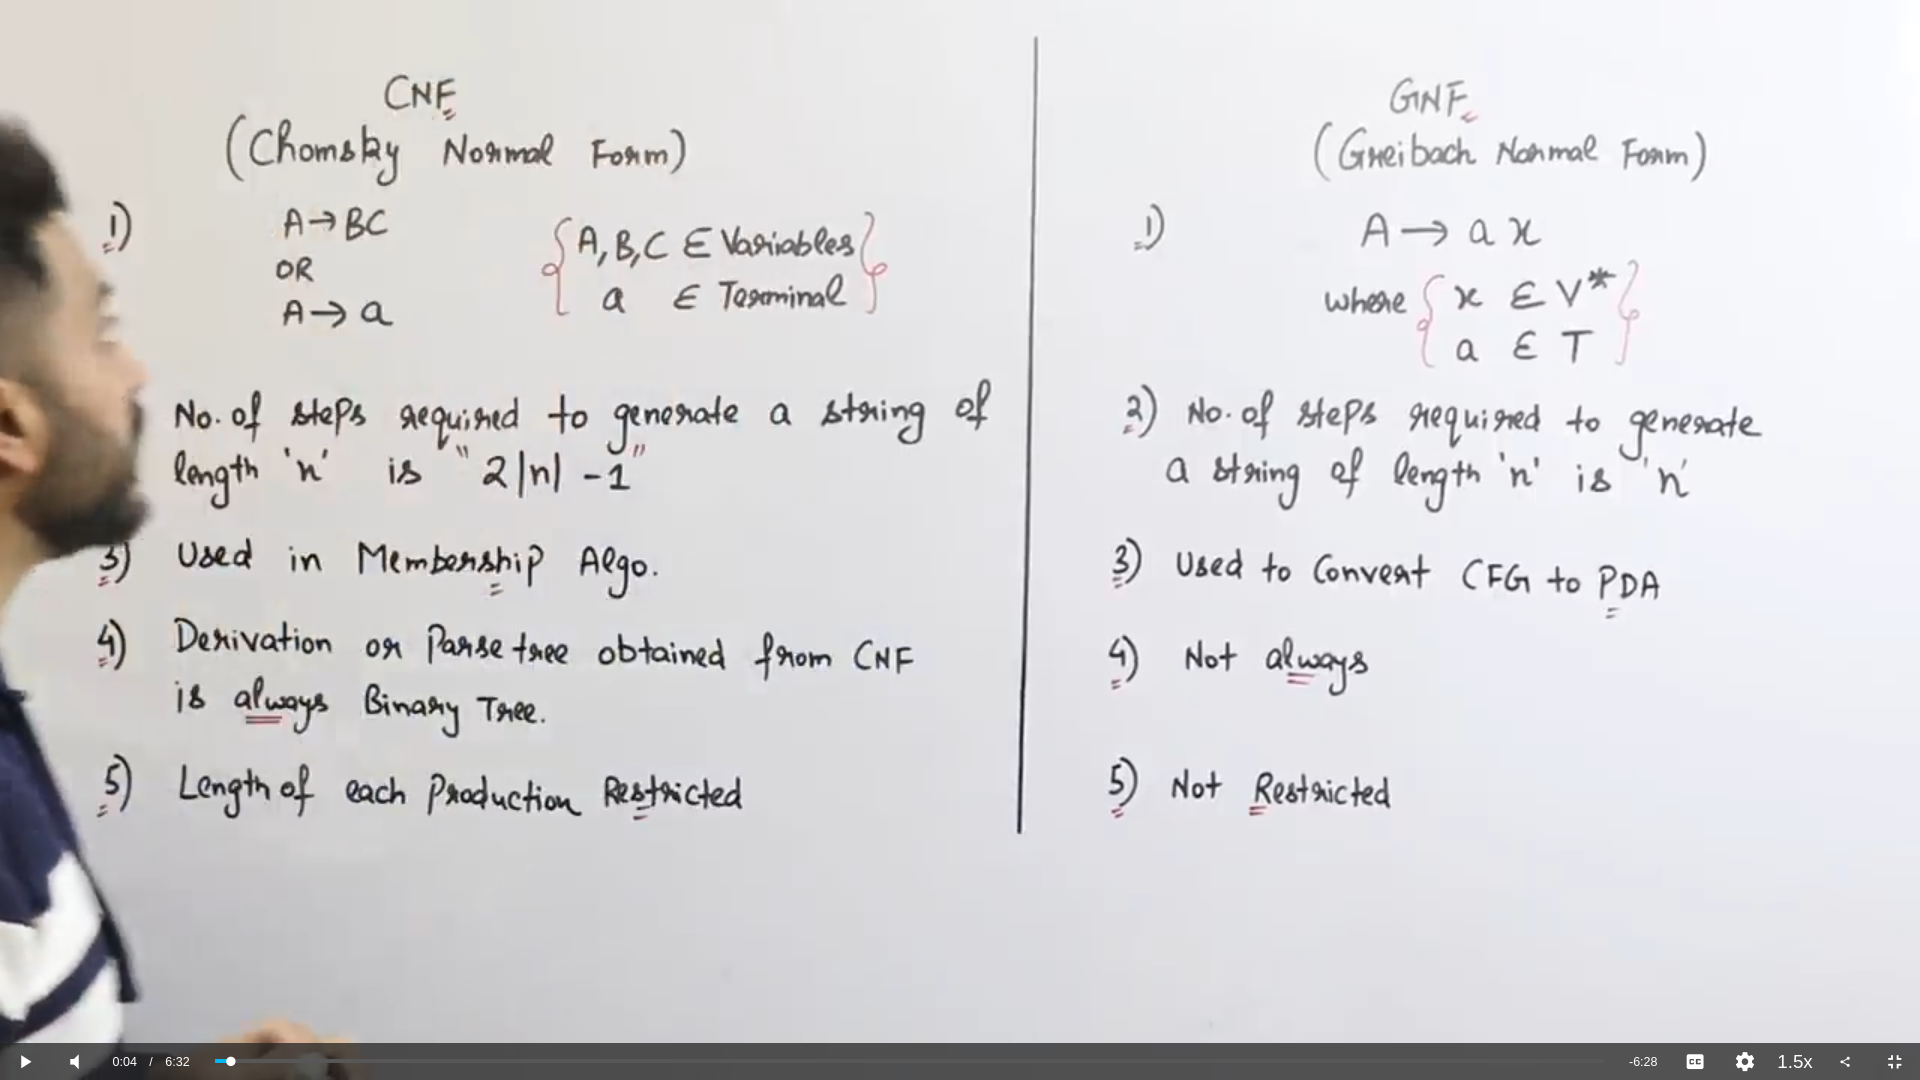 CNF
(Chomsky Normal Form)
1) A→BC
OR
A→a
{A,B,C ∈ Variables}
a ∈ Terminal
No. of steps required to generate a string of
length 'n' is "2|n| -1"
3) Used in Membership Algo.
4) Derivation or Parse tree obtained from CNF
is always Binary Tree.
5) Length of each Production Restricted
GNF
(Greibach Normal Form)
1) A → a x
where { x ∈ V* }
a ∈ T
2) No. of steps required to generate
a string of length 'n' is 'n'
3) Used to Convert CFG to PDA
4) Not always
5) Not Restricted
0:04 / 6:32
-6:28
CC
1.5x